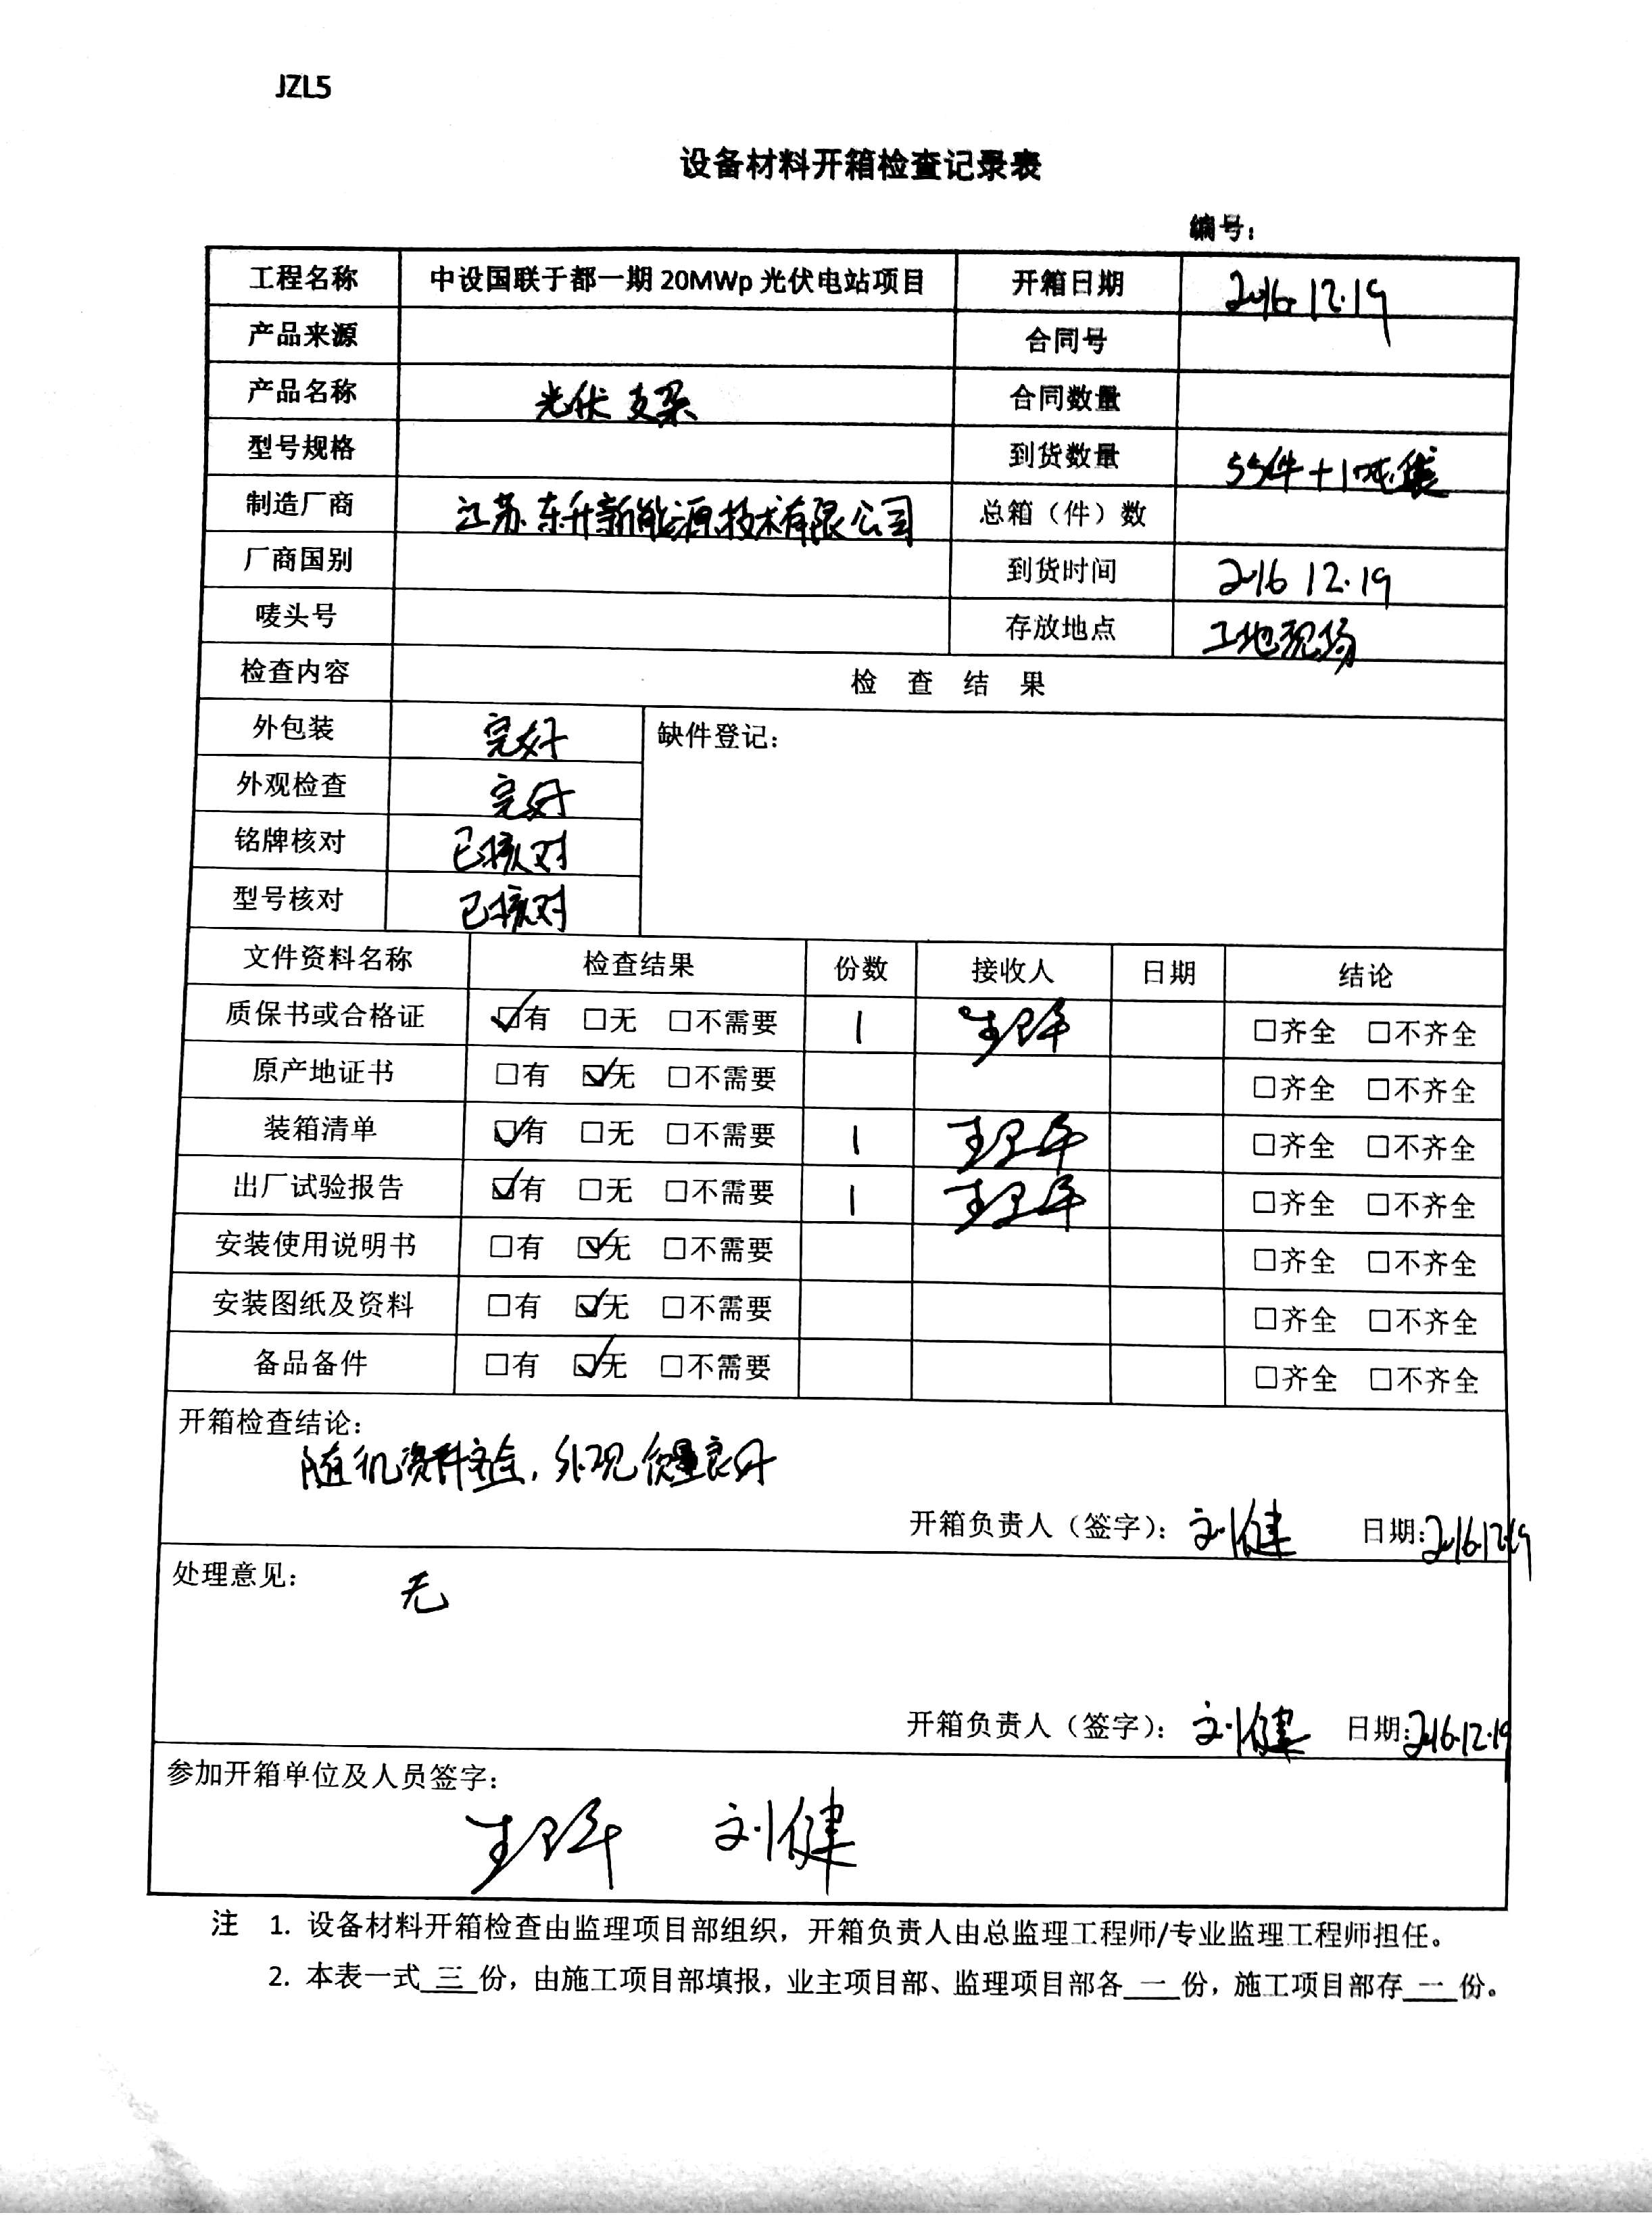 JZL5
设备材料开箱检查记录表
编号：
工程名称 中设国联于都一期 20MWp 光伏电站项目 开箱日期 2016.12.19
产品来源 合同号
产品名称 光伏支架 合同数量
型号规格 到货数量 55件+1吨袋
制造厂商 江苏东升新能源技术有限公司 总箱（件）数
厂商国别 到货时间 2016 12.19
唛头号 存放地点 工地现场
检查内容 检 查 结 果
外包装 完好 缺件登记：
外观检查 完好
铭牌核对 已核对
型号核对 已核对
文件资料名称 检查结果 份数 接收人 日期 结论
质保书或合格证 ☑有 □无 □不需要 1 □齐全 □不齐全
原产地证书 □有 ☑无 □不需要 □齐全 □不齐全
装箱清单 ☑有 □无 □不需要 1 □齐全 □不齐全
出厂试验报告 ☑有 □无 □不需要 1 □齐全 □不齐全
安装使用说明书 □有 ☑无 □不需要 □齐全 □不齐全
安装图纸及资料 □有 ☑无 □不需要 □齐全 □不齐全
备品备件 □有 ☑无 □不需要 □齐全 □不齐全
开箱检查结论：
随机资料齐全，外观质量良好
开箱负责人（签字）： 刘健 日期：2016.12.19
处理意见： 无
开箱负责人（签字）： 刘健 日期：2016.12.19
参加开箱单位及人员签字：
刘健
注 1. 设备材料开箱检查由监理项目部组织，开箱负责人由总监理工程师/专业监理工程师担任。
2. 本表一式 三 份，由施工项目部填报，业主项目部、监理项目部各 一 份，施工项目部存 一 份。